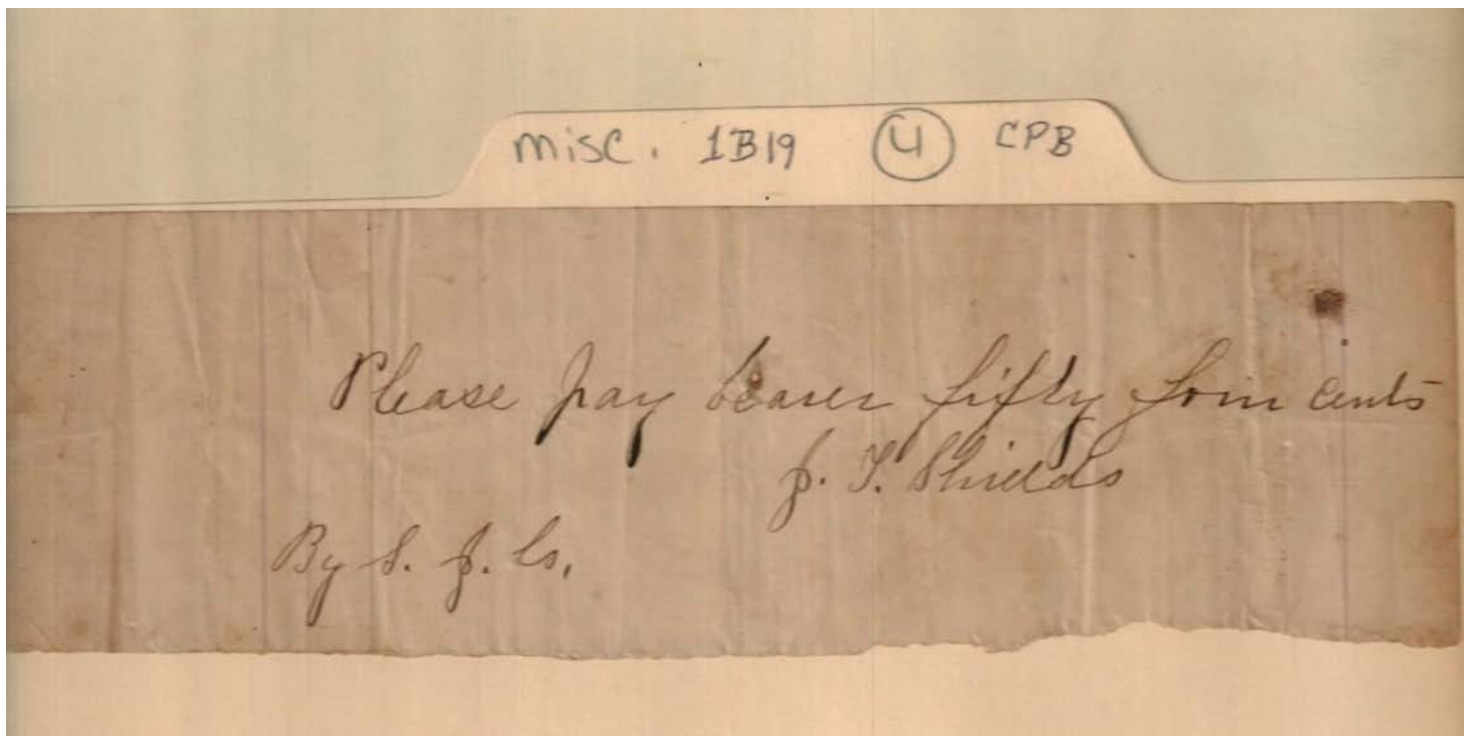 misc. 1B19 4 CPB
Please pay bearer fifty four cents
J. T. Shields
By S. J. Co.